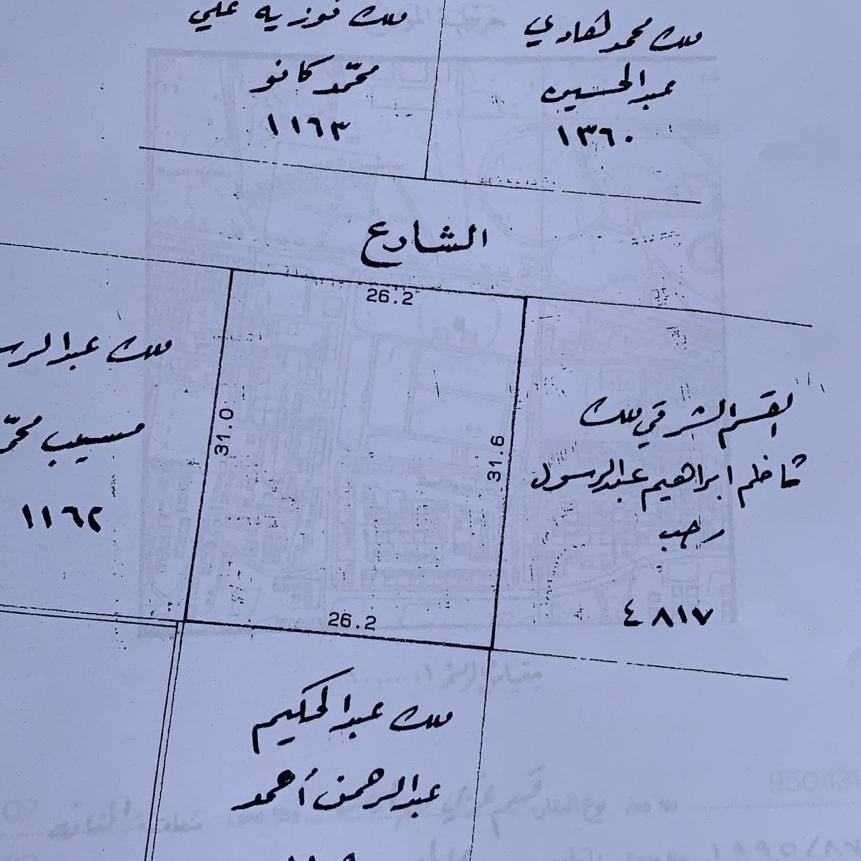 ملك محمد لهادي
عبدالحسين
١٣٦٠
ملك فوزيه علي
محمّد كانو
١١٦٣
الشارع
26.2
ملك عبدالرس
مسيب محمّ
١١٦٢
31.0
31.6
القسم الشرقي ملك
كاظم ابراهيم عبدالرسول
رجب
٤٨١٧
26.2
ملك عبدالحكيم
عبدالرحمن أحمد